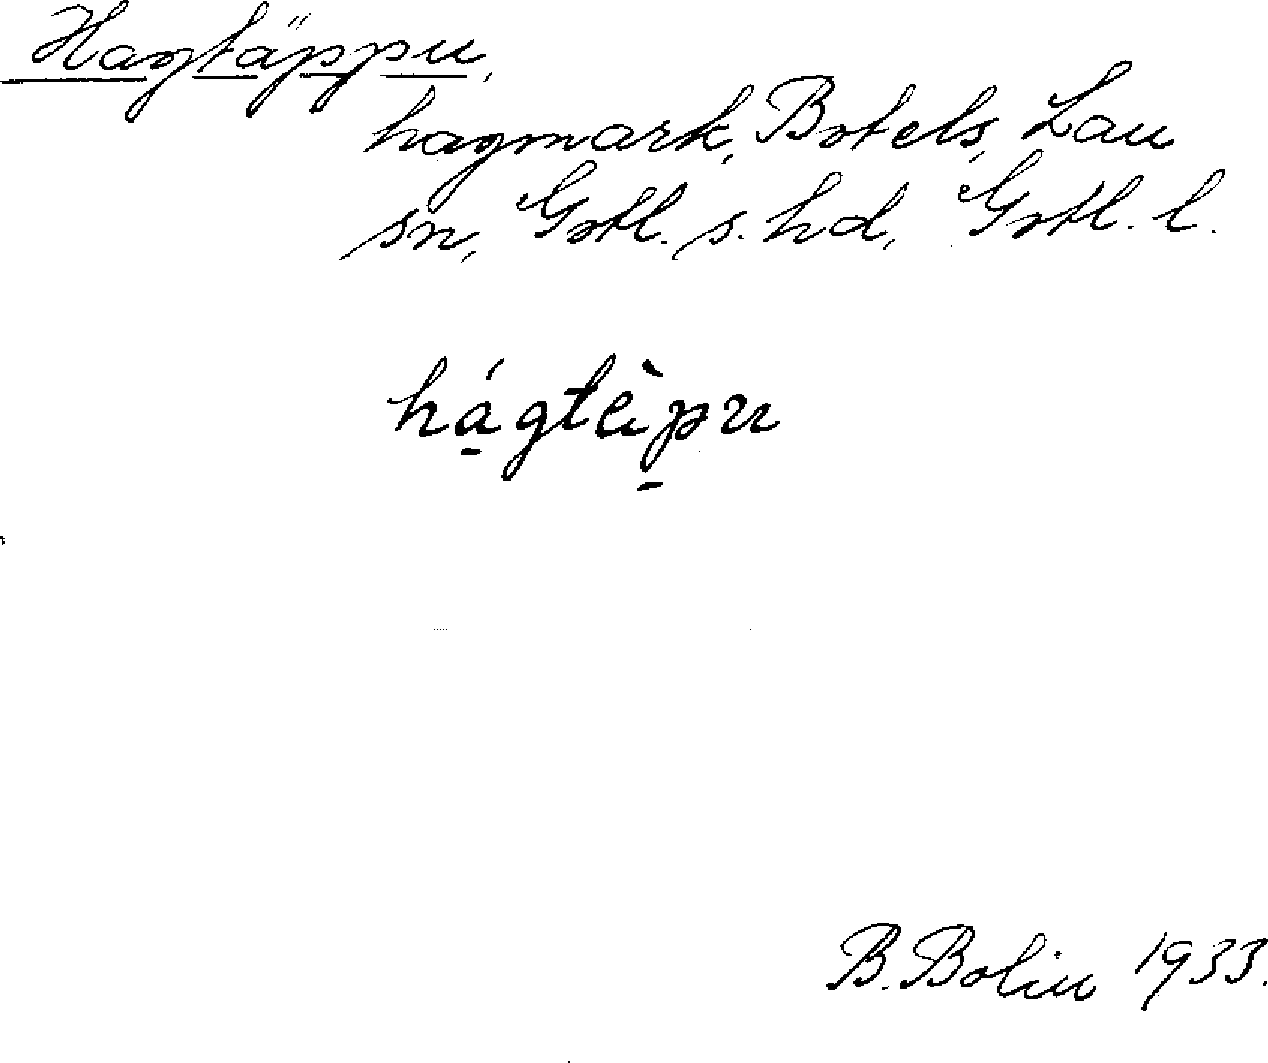 Hagtäppu,
hagmark, Botels, Lau
sn, Gotl. s. hd, Gotl. l.
há̱gtèp̱u
B. Bolin 1933.